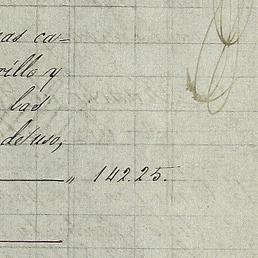 as ca-
rillo y
las
de uso,
" 142.25.